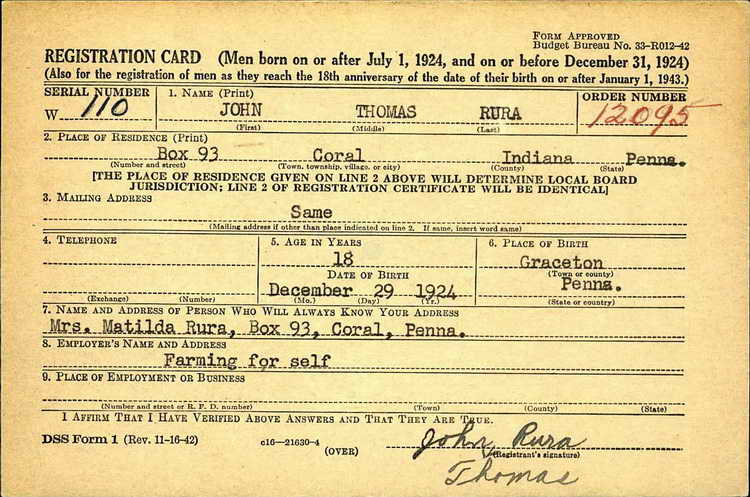 FORM APPROVED
Budget Bureau No. 33-R012-42
REGISTRATION CARD (Men born on or after July 1, 1924, and on or before December 31, 1924)
(Also for the registration of men as they reach the 18th anniversary of the date of their birth on or after January 1, 1943.)
SERIAL NUMBER 1. NAME (Print) ORDER NUMBER
W 110 JOHN THOMAS RURA 12095
(First) (Middle) (Last)
2. PLACE OF RESIDENCE (Print)
Box 93 Coral Indiana Penna.
(Number and street) (Town, township, village, or city) (County) (State)
[THE PLACE OF RESIDENCE GIVEN ON LINE 2 ABOVE WILL DETERMINE LOCAL BOARD
JURISDICTION; LINE 2 OF REGISTRATION CERTIFICATE WILL BE IDENTICAL]
3. MAILING ADDRESS
Same
(Mailing address if other than place indicated on line 2. If same, insert word same)
4. TELEPHONE 5. AGE IN YEARS 6. PLACE OF BIRTH
18 Graceton
DATE OF BIRTH (Town or county)
December 29 1924 Penna.
(Exchange) (Number) (Mo.) (Day) (Yr.) (State or country)
7. NAME AND ADDRESS OF PERSON WHO WILL ALWAYS KNOW YOUR ADDRESS
Mrs. Matilda Rura, Box 93, Coral, Penna.
8. EMPLOYER'S NAME AND ADDRESS
Farming for self
9. PLACE OF EMPLOYMENT OR BUSINESS
(Number and street or R. F. D. number) (Town) (County) (State)
I AFFIRM THAT I HAVE VERIFIED ABOVE ANSWERS AND THAT THEY ARE TRUE.
DSS Form 1 (Rev. 11-16-42) c16-21630-4 (OVER) John Rura
(Registrant's signature)
Thomas